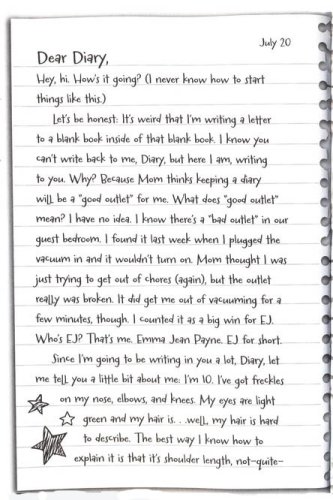 July 20
Dear Diary,
Hey, hi. How's it going? (I never know how to start
things like this.)
Let's be honest: It's weird that I'm writing a letter
to a blank book inside of that blank book. I know you
can't write back to me, Diary, but here I am, writing
to you. Why? Because Mom thinks keeping a diary
will be a "good outlet" for me. What does "good outlet"
mean? I have no idea. I know there's a "bad outlet" in our
guest bedroom. I found it last week when I plugged the
vacuum in and it wouldn't turn on. Mom thought I was
just trying to get out of chores (again), but the outlet
really was broken. It did get me out of vacuuming for a
few minutes, though. I counted it as a big win for EJ.
Who's EJ? That's me. Emma Jean Payne. EJ for short.
Since I'm going to be writing in you a lot, Diary, let
me tell you a little bit about me: I'm 10. I've got freckles
on my nose, elbows, and knees. My eyes are light
green and my hair is. . .well, my hair is hard
to describe. The best way I know how to
explain it is that it's shoulder length, not-quite-